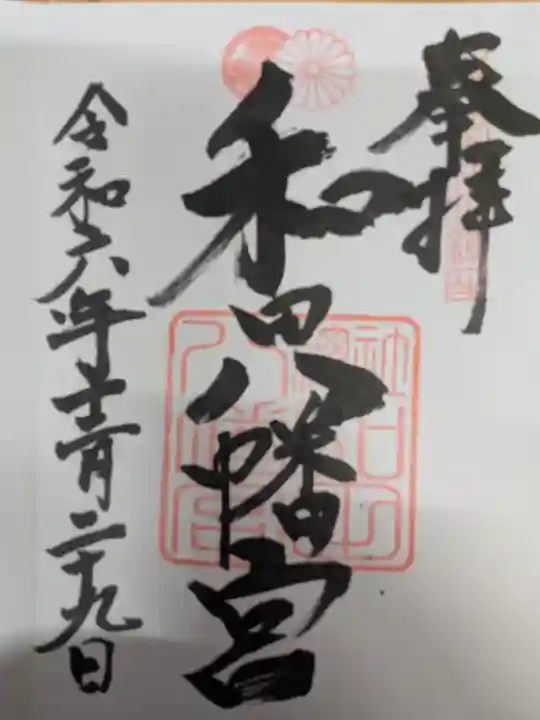 奉拝
和田八幡宮
令和六年十二月二十九日